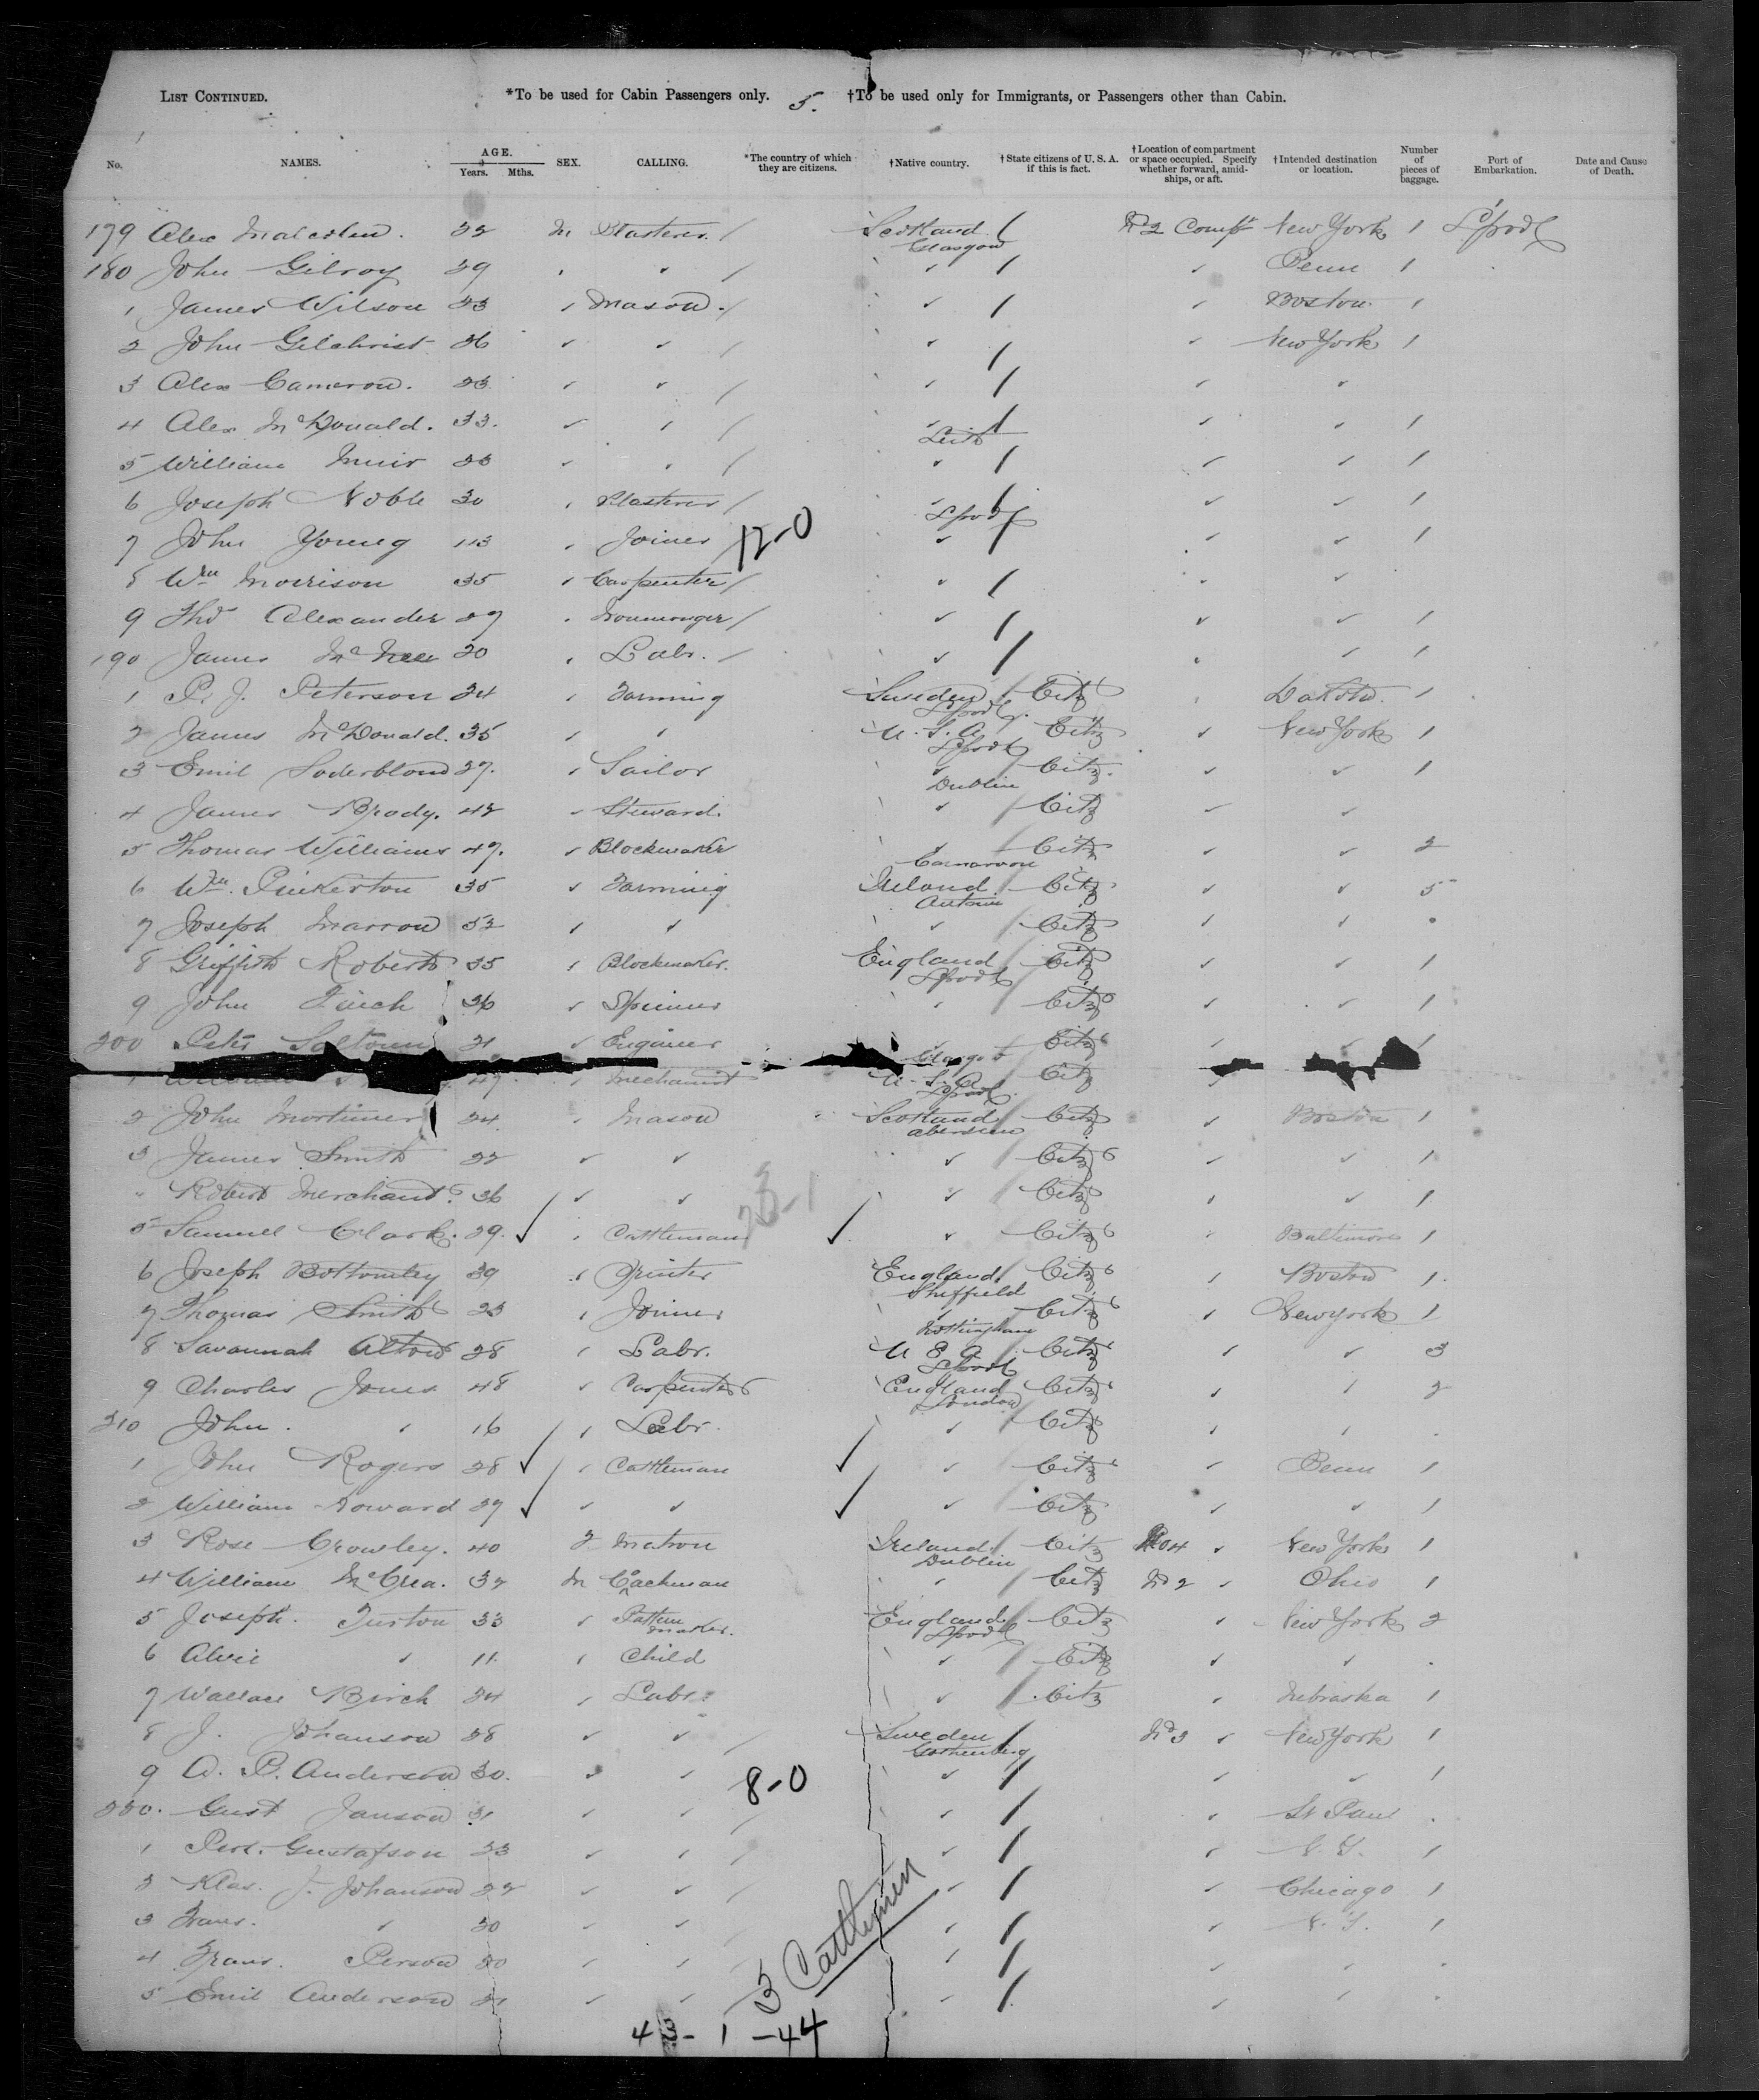 LIST CONTINUED. *To be used for Cabin Passengers only. 5. †To be used only for Immigrants, or Passengers other than Cabin.
No. NAMES. AGE. Years. Mths. SEX. CALLING. *The country of which they are citizens. †Native country. †State citizens of U. S. A. if this is fact. †Location of compartment or space occupied. Specify whether forward, amidships, or aft. †Intended destination or location. Number of pieces of baggage. Port of Embarkation. Date and Cause of Death.
179 Alex Malcolm. 22 M Plasterer / Scotland / No 2 Compt New York 1 L'pool
Glasgow
180 John Gilroy 29 " " / " / " Penn 1
1 James Wilson 23 " Mason / " / " Boston 1
2 John Gilchrist 26 " " / " / " New York 1
3 Alex Cameron. 23 " " / " / " "
4 Alex McDonald. 33. " " / " / " " 1
Leith
5 William Muir 23 " " / " / " " 1
6 Joseph Noble 30 " Plasterer / " / " " 1
L'pool
7 John Young " Joiner 12-0 " / " " 1
8 Wm Morrison 35 " Carpenter / " / " "
9 Thos Alexander 27 " Ironmonger / " / " " 1
190 James McNee 20 " Labr. / " / " " 1
1 P. J. Peterson 24 " Farming Sweden / Citz " Dakota. 1
L'pool
2 James McDonald. 35 " " U.S.A / Citz " New York 1
L'pool
3 Emil Soderblom 27. " Sailor " / Citz. " " 1
Dublin
4 James Brody. 42 " Steward. " / Citz " "
5 Thomas Williams 47. " Blockmaker " / Citz " " 2
Carnarvon
6 Wm. Pinkerton 35 " Farming Ireland / Citz " " 5
Antrim
7 Joseph Marrow 52 " " " / Citz " "
8 Griffith Roberts 35 " Blockmaker. England / Citz " " 1
L'pool
9 John Finch 36 " Spinner " Citz " " 1
200 Peter Saltoun 21 " Engineer " Citz " " 1
Glasgow
1 47. " Mechanist U.S.A Citz
L'pool
2 John Mortimer 24. " Mason Scotland / Citz " Boston 1
Aberdeen
3 James Smith 22 " " " / Citz " " 1
" Robert Merchant. 36 " " 23-1 " / Citz " " 1
5 Samuel Clark. 29. ✓ " Cattleman ✓ " / Citz " Baltimore 1
6 Joseph Bottomley 39 " England / Citz " Boston 1.
Sheffield
7 Thomas Smith 23 " Joiner " / Citz " New York 1
Nottingham
8 Savannah 28 " Labr. U S A / Citz " " 3
L'pool
9 Charles Jones 48 " Carpenter England / Citz " " 2
London
210 John. " 16 " Labr. " / Citz " "
1 John Rogers 28 ✓ " Cattleman ✓ " / Citz " Penn 1
2 William Howard 27 ✓ " " ✓ " / Citz " " 1
3 Rose Crowley. 40 F Matron Ireland / Citz No 4 " New York 1
Dublin
4 William McCrea. 32 M Cachman " / Citz No 2 " Ohio 1
5 Joseph. Turton 33 " Pattern maker. England / Citz " New York 2
L'pool
6 " 11. " Child " / Citz " "
7 Wallace Birch 24 " Labr. " / Citz " Nebraska 1
8 J. Johanson 28 " " / Sweden / No 3 " New York 1
Gothenberg
9 A. P. Anderson 30. " " 8-0 " / " " 1
220. Gust Janson 31 " " / " / " St Paul
1 Gustafson 23 " " / " / " N. Y. 1
2 Klas. J. Johanson 22 " " / " / " Chicago 1
3 Frans. " 20 " " " / " N. Y. 1
4 Frans. Person 20 " " " / " "
5 Emil Anderson 21 " " " / " "
3 Cattlemen
43-1-44